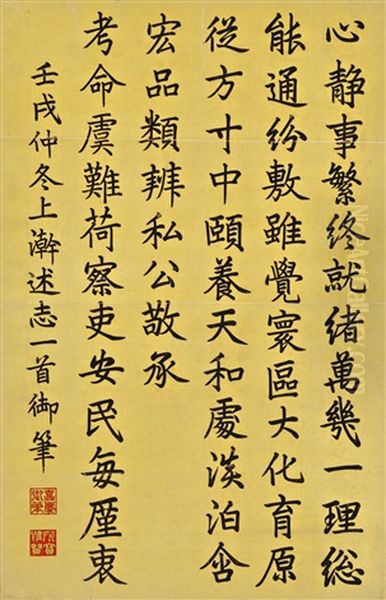 心靜事繁終就緒萬幾一理総
能通紛敷雖覺寰區大化育原
從方寸中頤養天和處淡泊含
宏品類辨私公敬承
考命虞難荷察吏安民每厪衷
壬戌仲冬上澣述志一首御筆
嘉慶御筆